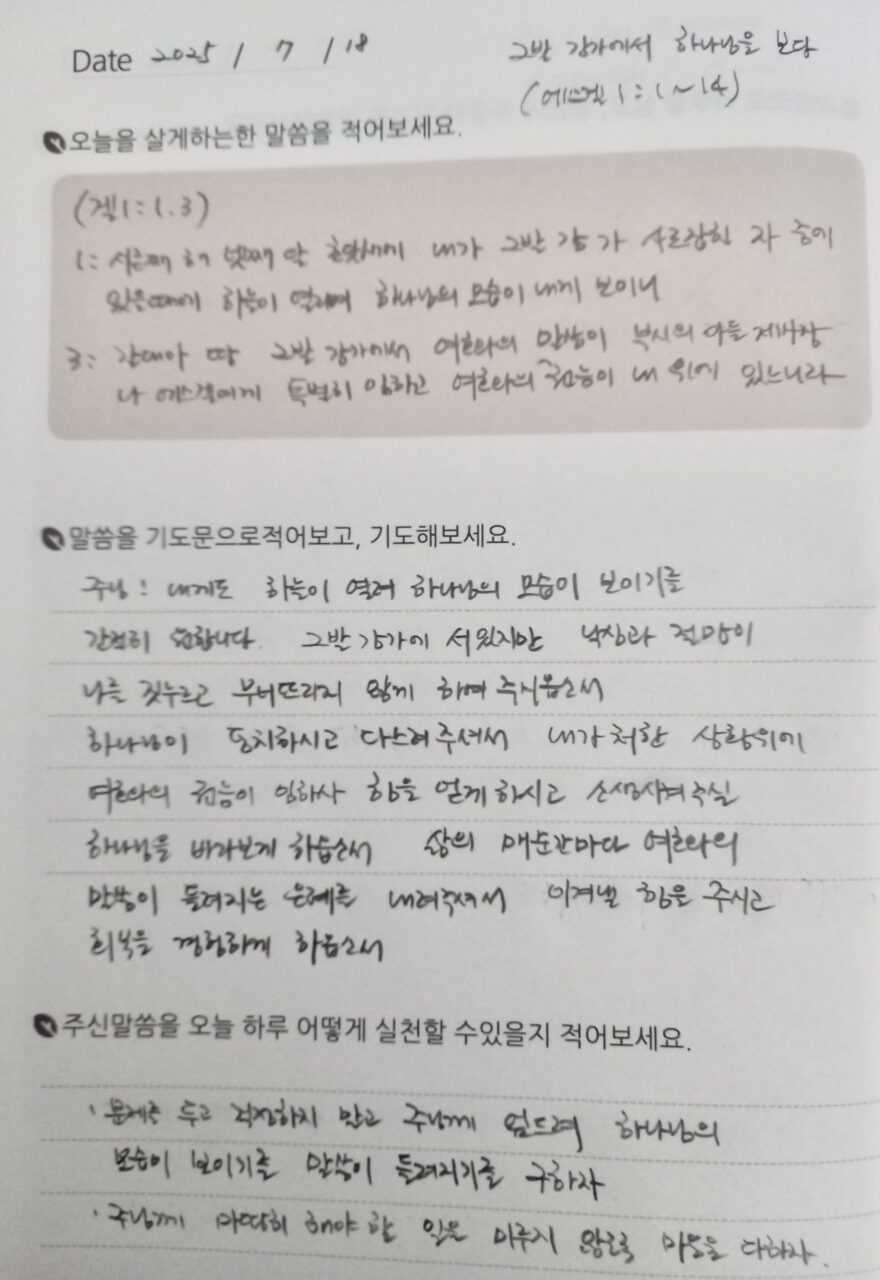 Date 2025 / 7 / 18
그발 강가에서 하나님을 보다
(에스겔 1:1~14)
오늘을 살게하는한 말씀을 적어보세요.
(겔1:1.3)
1: 서른째 해 넷째 달 초닷새에 내가 그발 강 가 사로잡힌 자 중에
있을때에 하늘이 열리며 하나님의 모습이 내게 보이니
3: 갈대아 땅 그발 강가에서 여호와의 말씀이 부시의 아들 제사장
나 에스겔에게 특별히 임하고 여호와의 권능이 내 위에 있느니라
말씀을 기도문으로적어보고, 기도해보세요.
주님! 내게도 하늘이 열려 하나님의 모습이 보이기를
간절히 원합니다. 그발 강가에 서있지만 낙심과 절망이
나를 짓누르고 무너뜨리지 않게 하여 주시옵소서
하나님이 통치하시고 다스려주셔서 내가처한 상황위에
여호와의 권능이 임하사 힘을 얻게하시고 소생시켜주실
하나님을 바라보게 하옵소서 삶의 매순간마다 여호와의
말씀이 들려지는 은혜를 내려주셔서 이겨낼 힘을 주시고
회복을 경험하게 하옵소서
주신말씀을 오늘 하루 어떻게 실천할 수있을지 적어보세요.
· 문제를 두고 걱정하지 말고 주님께 엎드려 하나님의
모습이 보이기를 말씀이 들려지기를 구하자
· 주님께 마땅히 해야 할 일은 미루지 않도록 마음을 다하자.